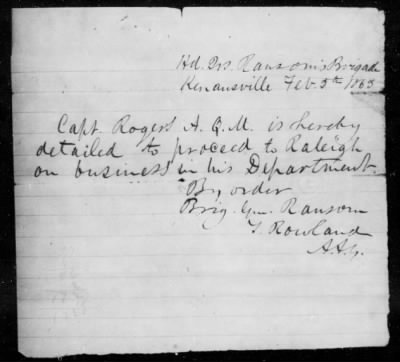 Hd. Qrs. Ransom's Brigade
Kenansville Feb. 5th 1863
Capt. Rogers A. Q. M. is hereby
detailed to proceed to Raleigh
on business in his Department.
By order
Brig. Gen. Ransom
T. Rowland
A.A.G.